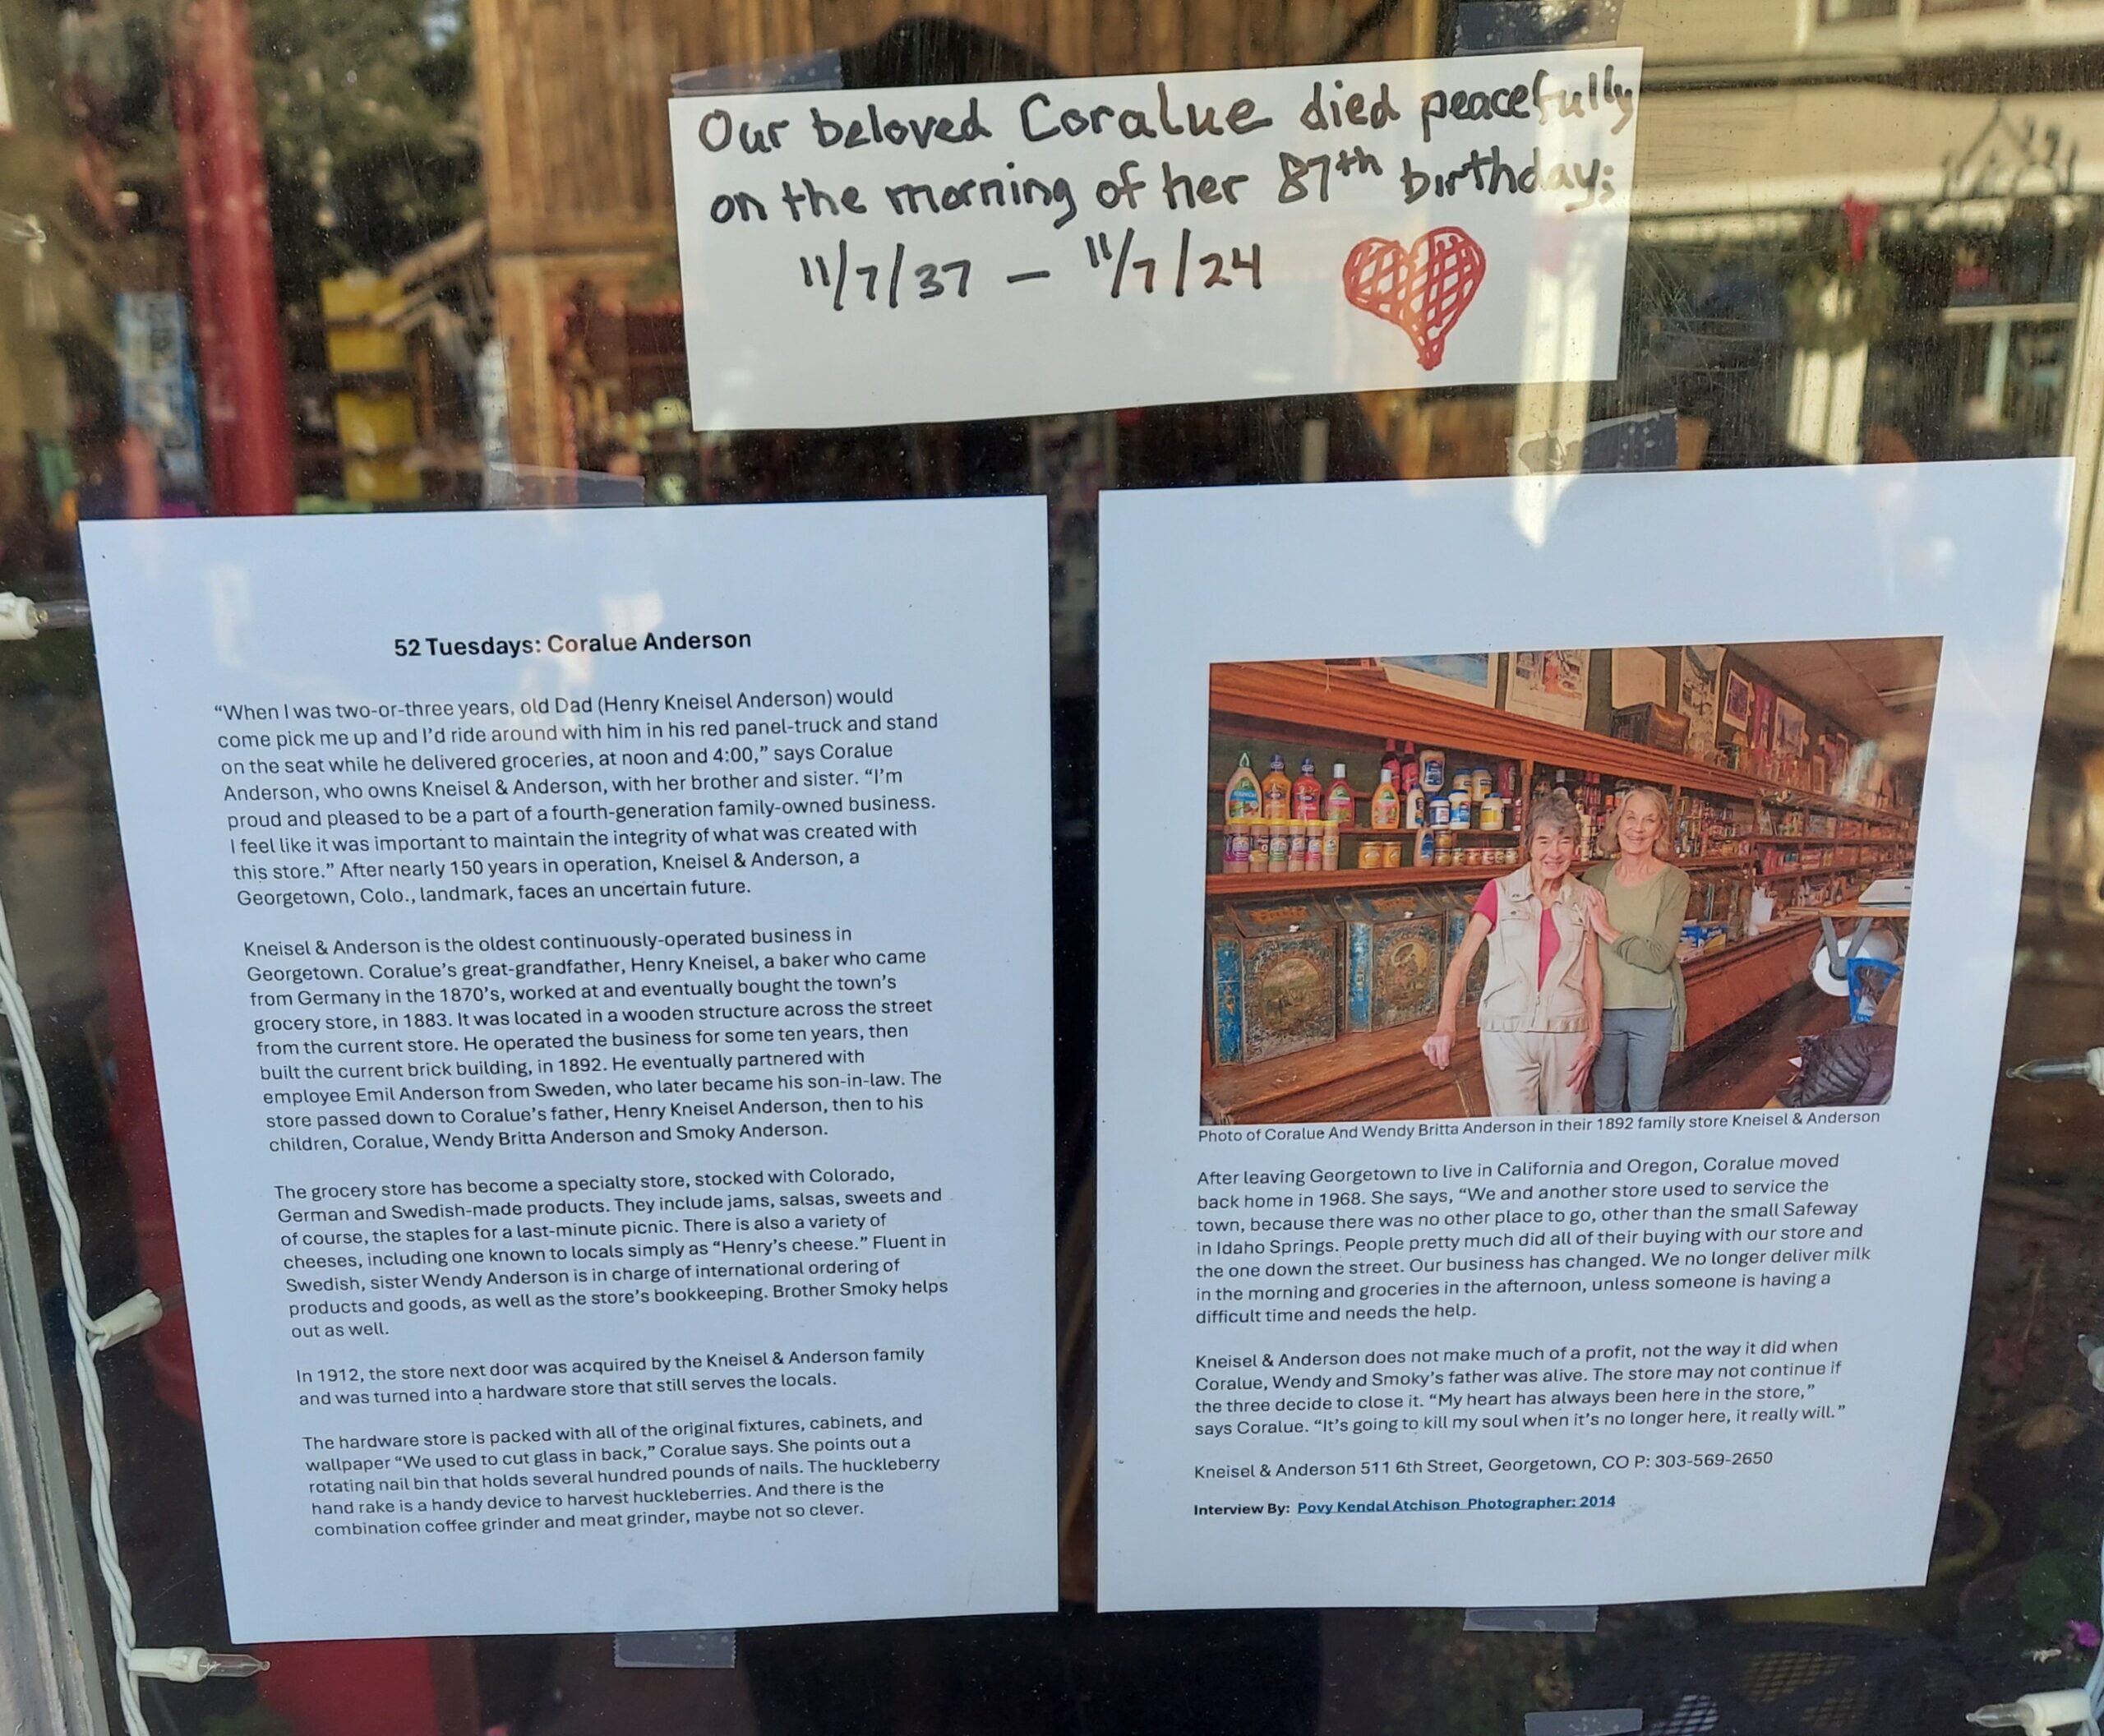 Our beloved Coralue died peacefully
on the morning of her 87th birthday;
11/7/37 – 11/7/24
52 Tuesdays: Coralue Anderson
“When I was two-or-three years, old Dad (Henry Kneisel Anderson) would
come pick me up and I’d ride around with him in his red panel-truck and stand
on the seat while he delivered groceries, at noon and 4:00,” says Coralue
Anderson, who owns Kneisel & Anderson, with her brother and sister. “I’m
proud and pleased to be a part of a fourth-generation family-owned business.
I feel like it was important to maintain the integrity of what was created with
this store.” After nearly 150 years in operation, Kneisel & Anderson, a
Georgetown, Colo., landmark, faces an uncertain future.
Kneisel & Anderson is the oldest continuously-operated business in
Georgetown. Coralue’s great-grandfather, Henry Kneisel, a baker who came
from Germany in the 1870’s, worked at and eventually bought the town’s
grocery store, in 1883. It was located in a wooden structure across the street
from the current store. He operated the business for some ten years, then
built the current brick building, in 1892. He eventually partnered with
employee Emil Anderson from Sweden, who later became his son-in-law. The
store passed down to Coralue’s father, Henry Kneisel Anderson, then to his
children, Coralue, Wendy Britta Anderson and Smoky Anderson.
The grocery store has become a specialty store, stocked with Colorado,
German and Swedish-made products. They include jams, salsas, sweets and
of course, the staples for a last-minute picnic. There is also a variety of
cheeses, including one known to locals simply as “Henry’s cheese.” Fluent in
Swedish, sister Wendy Anderson is in charge of international ordering of
products and goods, as well as the store’s bookkeeping. Brother Smoky helps
out as well.
In 1912, the store next door was acquired by the Kneisel & Anderson family
and was turned into a hardware store that still serves the locals.
The hardware store is packed with all of the original fixtures, cabinets, and
wallpaper “We used to cut glass in back,” Coralue says. She points out a
rotating nail bin that holds several hundred pounds of nails. The huckleberry
hand rake is a handy device to harvest huckleberries. And there is the
combination coffee grinder and meat grinder, maybe not so clever.
Photo of Coralue And Wendy Britta Anderson in their 1892 family store Kneisel & Anderson
After leaving Georgetown to live in California and Oregon, Coralue moved
back home in 1968. She says, “We and another store used to service the
town, because there was no other place to go, other than the small Safeway
in Idaho Springs. People pretty much did all of their buying with our store and
the one down the street. Our business has changed. We no longer deliver milk
in the morning and groceries in the afternoon, unless someone is having a
difficult time and needs the help.
Kneisel & Anderson does not make much of a profit, not the way it did when
Coralue, Wendy and Smoky’s father was alive. The store may not continue if
the three decide to close it. “My heart has always been here in the store,”
says Coralue. “It’s going to kill my soul when it’s no longer here, it really will.”
Kneisel & Anderson 511 6th Street, Georgetown, CO P: 303-569-2650
Interview By: Povy Kendal Atchison Photographer: 2014